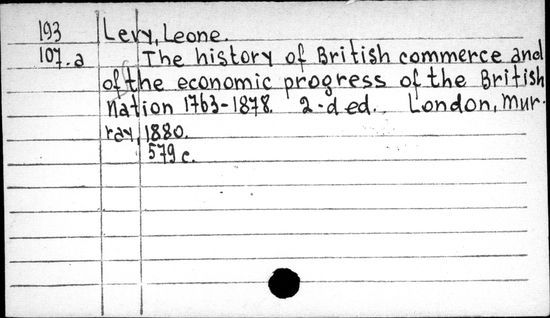 193 Levy, Leone.
107.a The history of British commerce and
of the economic progress of the British
Nation 1763-1878. 2-d ed. London, Mur-
ray, 1880.
579 c.